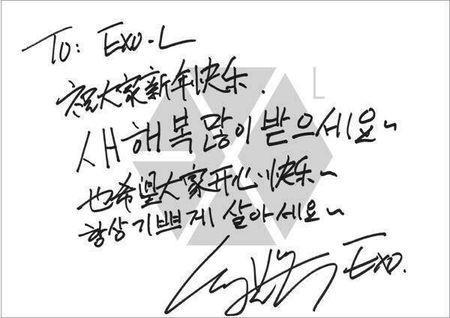 To: Exo-L
祝大家新年快乐.
새해 복 많이 받으세요~
也希望大家开心快乐~
항상 기쁘게 살아세요~
Exo.
L